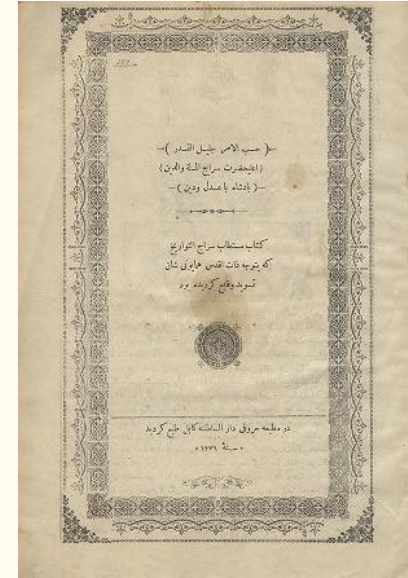 ﴿ حسب الامر جلیل القدر ﴾
﴿ اعلیحضرت سراج الملة والدین ﴾
﴿ پادشاه با عدل ودین ﴾
کتاب مستطاب سراج التواریخ
که بتوجه ذات اقدس همایونی شان
تسوید وقایع کردیده بود
در مطبعه حروفی دار السلطنه کابل طبع کردید
« سنهٔ ۱۳۳۱ »